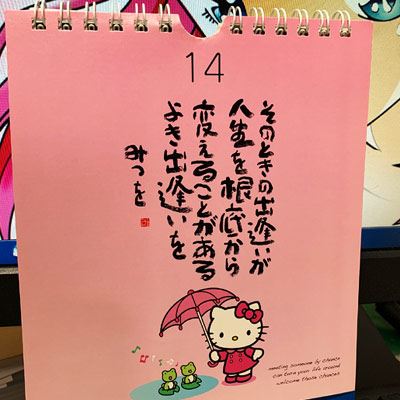 14
そのときの出逢いが
人生を根底から
変えることがある
よき出逢いを
みつを
meeting someone by chance
can turn your life around
welcome those chances